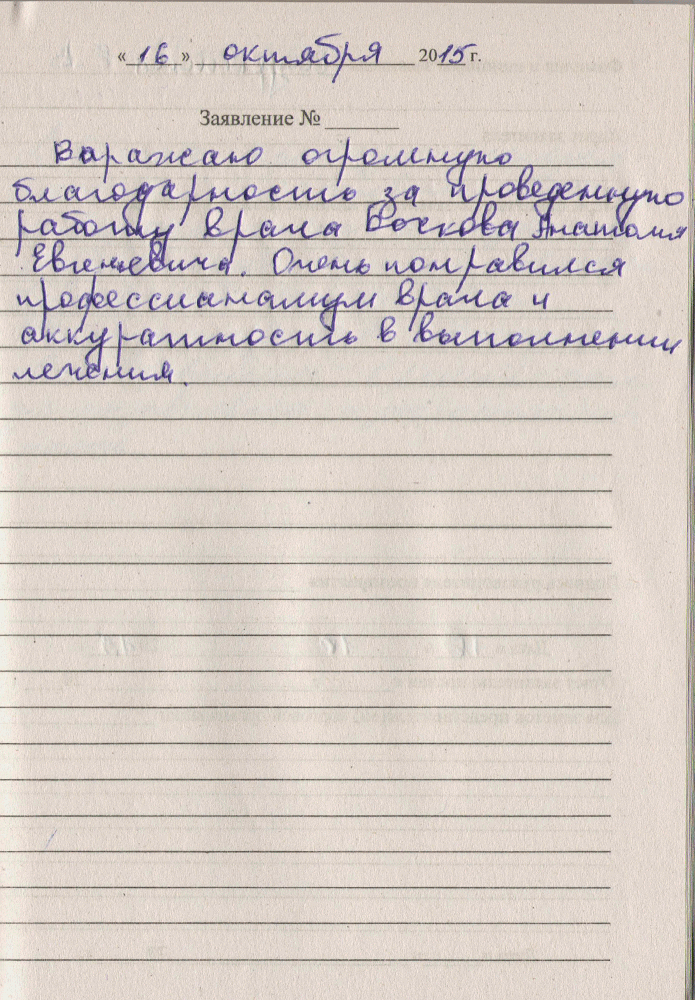 « 16 » октября 2015 г.
Заявление №
Выражаю огромную
благодарность за проведенную
работу врача Бочкова Анатолия
Евгеньевича. Очень понравился
профессианализм врача и
аккуратность в выполнении
лечения.